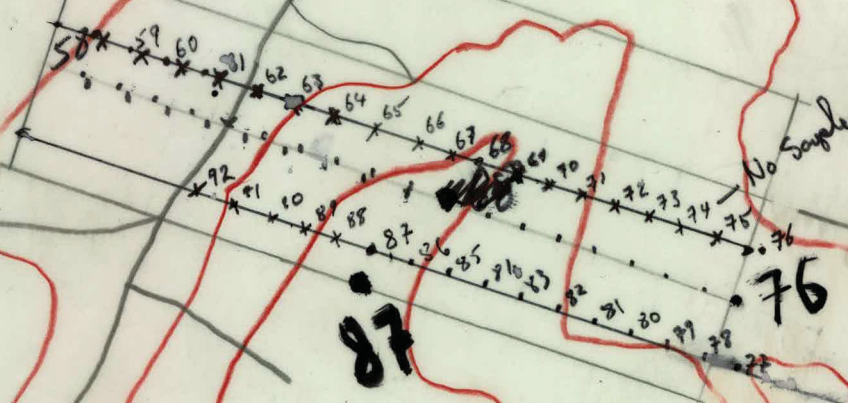 58 59 60 61 62 63 64 65 66 67 68 69 70 71 72 73 74 75 76
No Sample
76
92 91 90 89 88 87 86 85 84 83 82 81 80 79 78 77
87